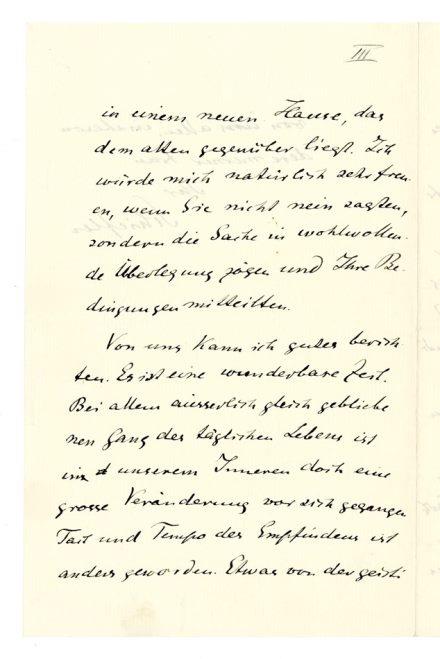 III
in einem neuen Hause, das
dem alten gegenüber liegt. Ich
würde mich natürlich sehr freu-
en, wenn Sie nicht nein sagten,
sondern die Sache in wohlwollen-
de Überlegung zögen und Ihre Be-
dingungen mitteilten.
Von uns kann ich gutes berich
ten. Es ist eine wunderbare Zeit.
Bei allem äusserlich gleich gebliebe
nen Gang des täglichen Lebens ist
in unserem Inneren doch eine
grosse Veränderung vor sich gegangen
Takt und Tempo des Empfindens ist
anders geworden. Etwas von der geisti